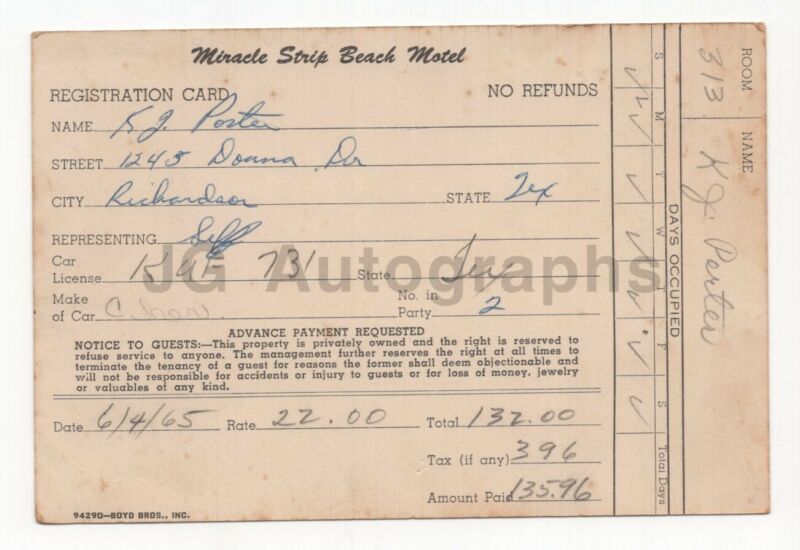 Miracle Strip Beach Motel
REGISTRATION CARD NO REFUNDS
NAME K J. Porter
STREET 1245 Donna Dr
CITY Richardson STATE Tex
REPRESENTING Self
Car License 731 State Tex
Make of Car No. in Party 2
ADVANCE PAYMENT REQUESTED
NOTICE TO GUESTS:—This property is privately owned and the right is reserved to
refuse service to anyone. The management further reserves the right at all times to
terminate the tenancy of a guest for reasons the former shall deem objectionable and
will not be responsible for accidents or injury to guests or for loss of money, jewelry
or valuables of any kind.
Date 6/4/65 Rate 22.00 Total 132.00
Tax (if any) 396
Amount Paid 135.96
94290—BOYD BROS., INC.
ROOM 313
NAME K J. Porter
DAYS OCCUPIED
S M T W T F S Total Days
JG Autographs